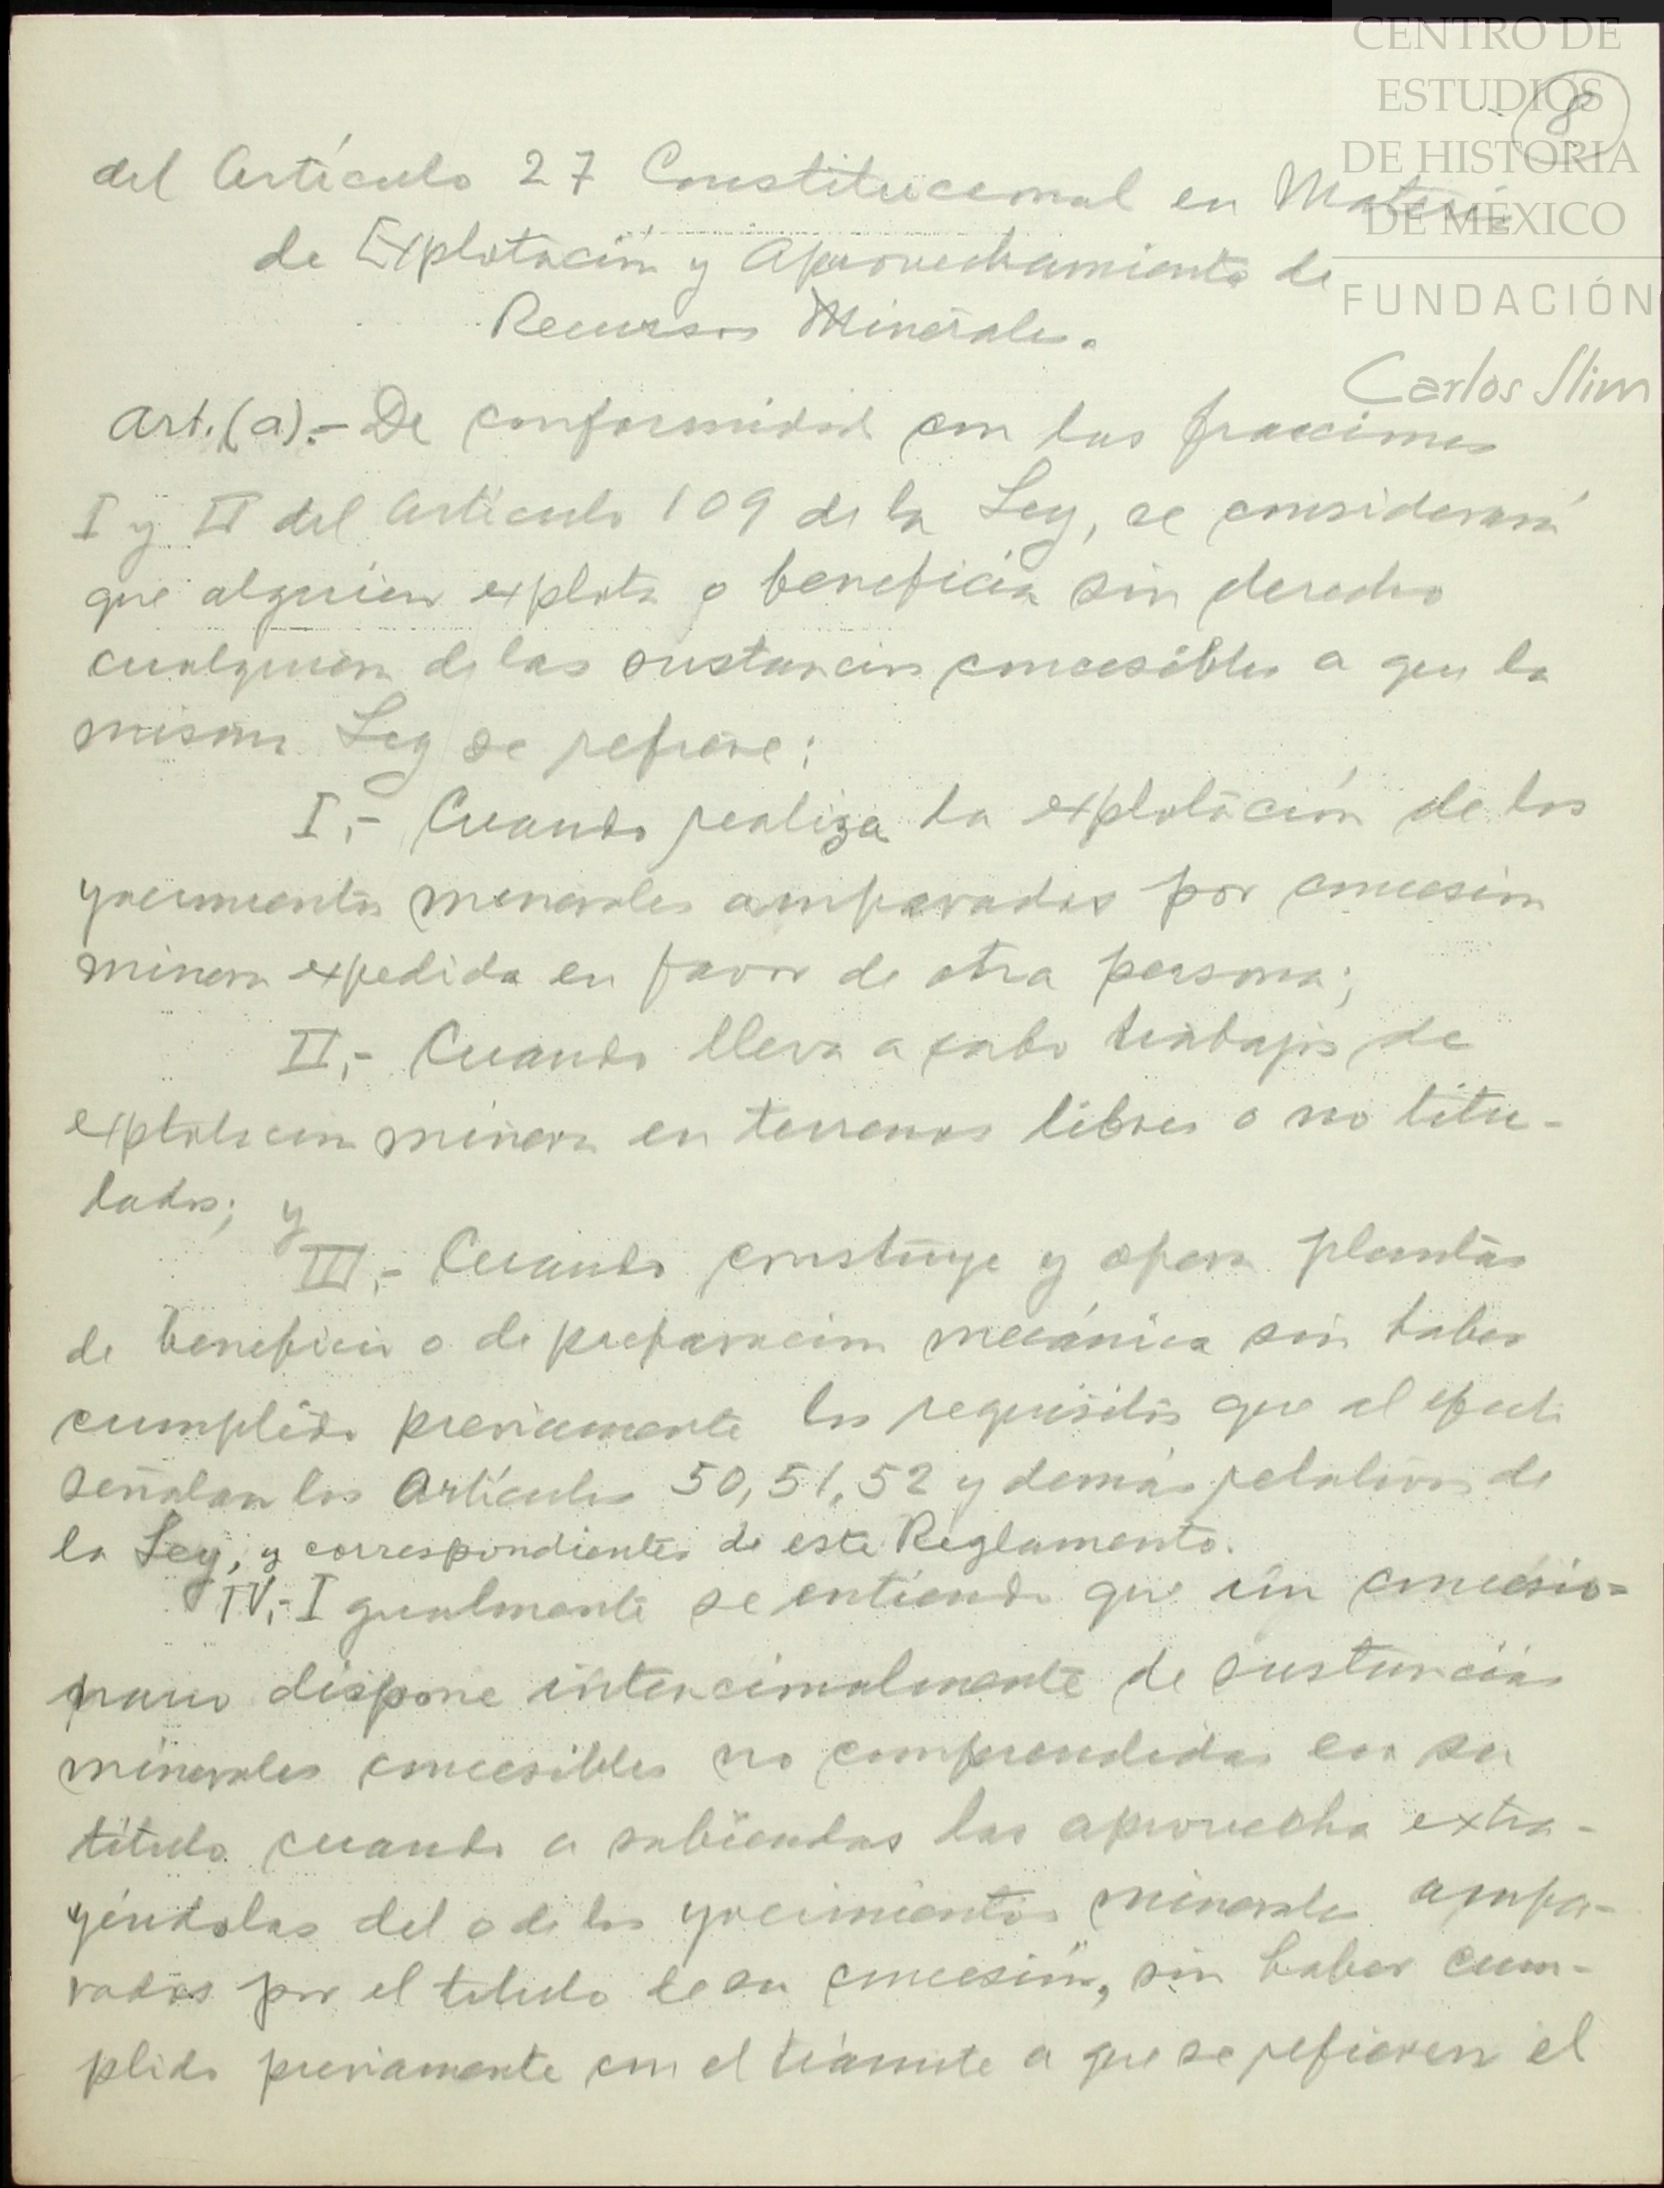 CENTRO DE
ESTUDIOS
DE HISTORIA
DE MÉXICO
FUNDACIÓN
Carlos Slim
8
del Artículo 27 Constitucional en Materia
de Explotación y Aprovechamiento de
Recursos Minerales.
Art. (a).- De conformidad con las fracciones
I y II del Artículo 109 de la Ley, se considerará
que alguien explota o beneficia sin derecho
cualquiera de las sustancias concesibles a que la
misma Ley se refiere:
I.- Cuando realiza la explotación de los
yacimientos minerales amparados por concesión
minera expedida en favor de otra persona;
II.- Cuando lleva a cabo trabajos de
explotacion minera en terrenos libres o no titu-
lados; y
III.- Cuando construye y opera plantas
de beneficio o de preparacion mecánica sin haber
cumplido previamente los requisitos que al efecto
señalan los Artículos 50, 51, 52 y demás relativos de
la Ley, y correspondientes de este Reglamento.
IV.- Igualmente se entiende que un concesio=
nario dispone intencionalmente de sustancias
minerales concesibles no comprendidas en su
título cuando a sabiendas las aprovecha extra-
yéndolas del o de los yacimientos minerales ampa-
rados por el titulo de su concesión, sin haber cum-
plido previamente con el trámite a que se refieren el